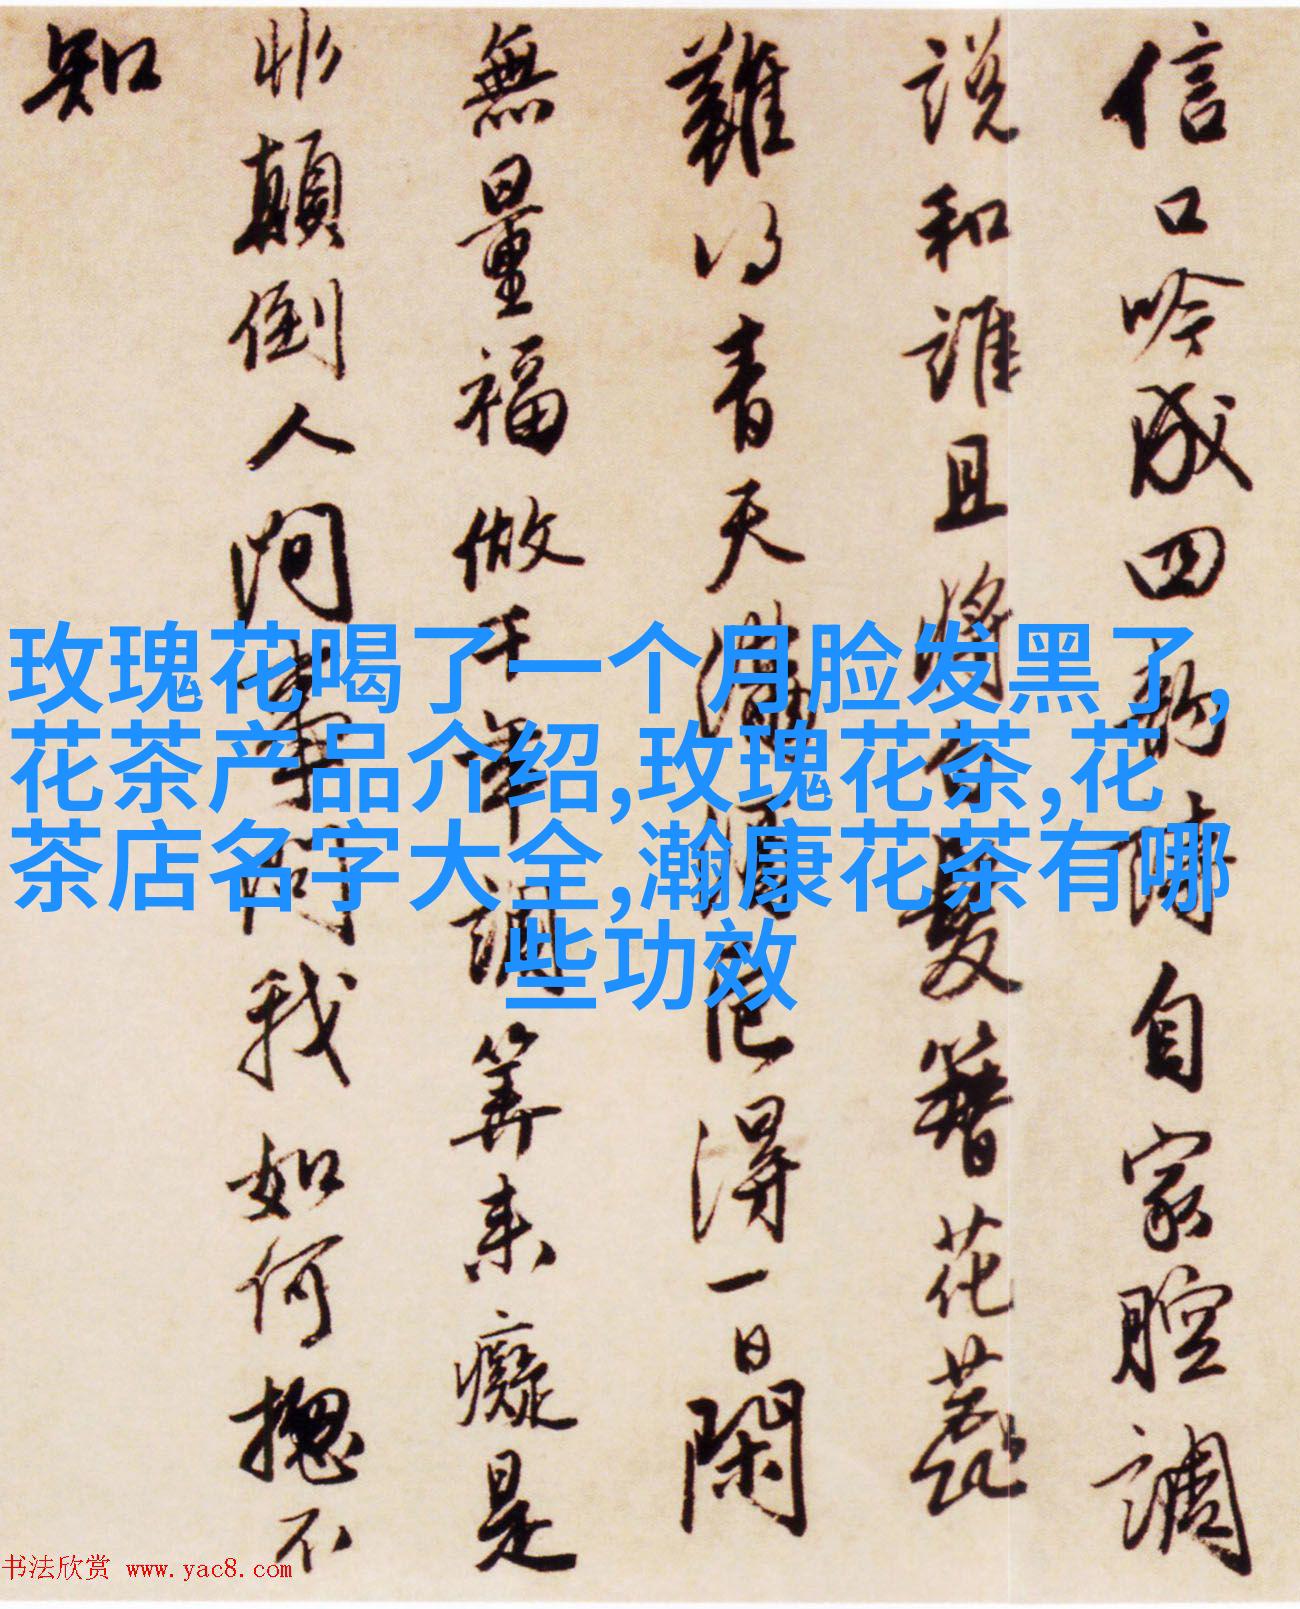 信口吟成四韵詩自家腔調
説和誰且將白髮簪花蕊
難得青天滿酒卮得一日閑
無量福做千年調算来癡是
非顛倒人間事問我如何揔不
知
玫瑰花喝了一个月脸发黑了,
花茶产品介绍,玫瑰花茶,花
茶店名字大全,瀚康花茶有哪
些功效
书法欣赏 www.yac8.com